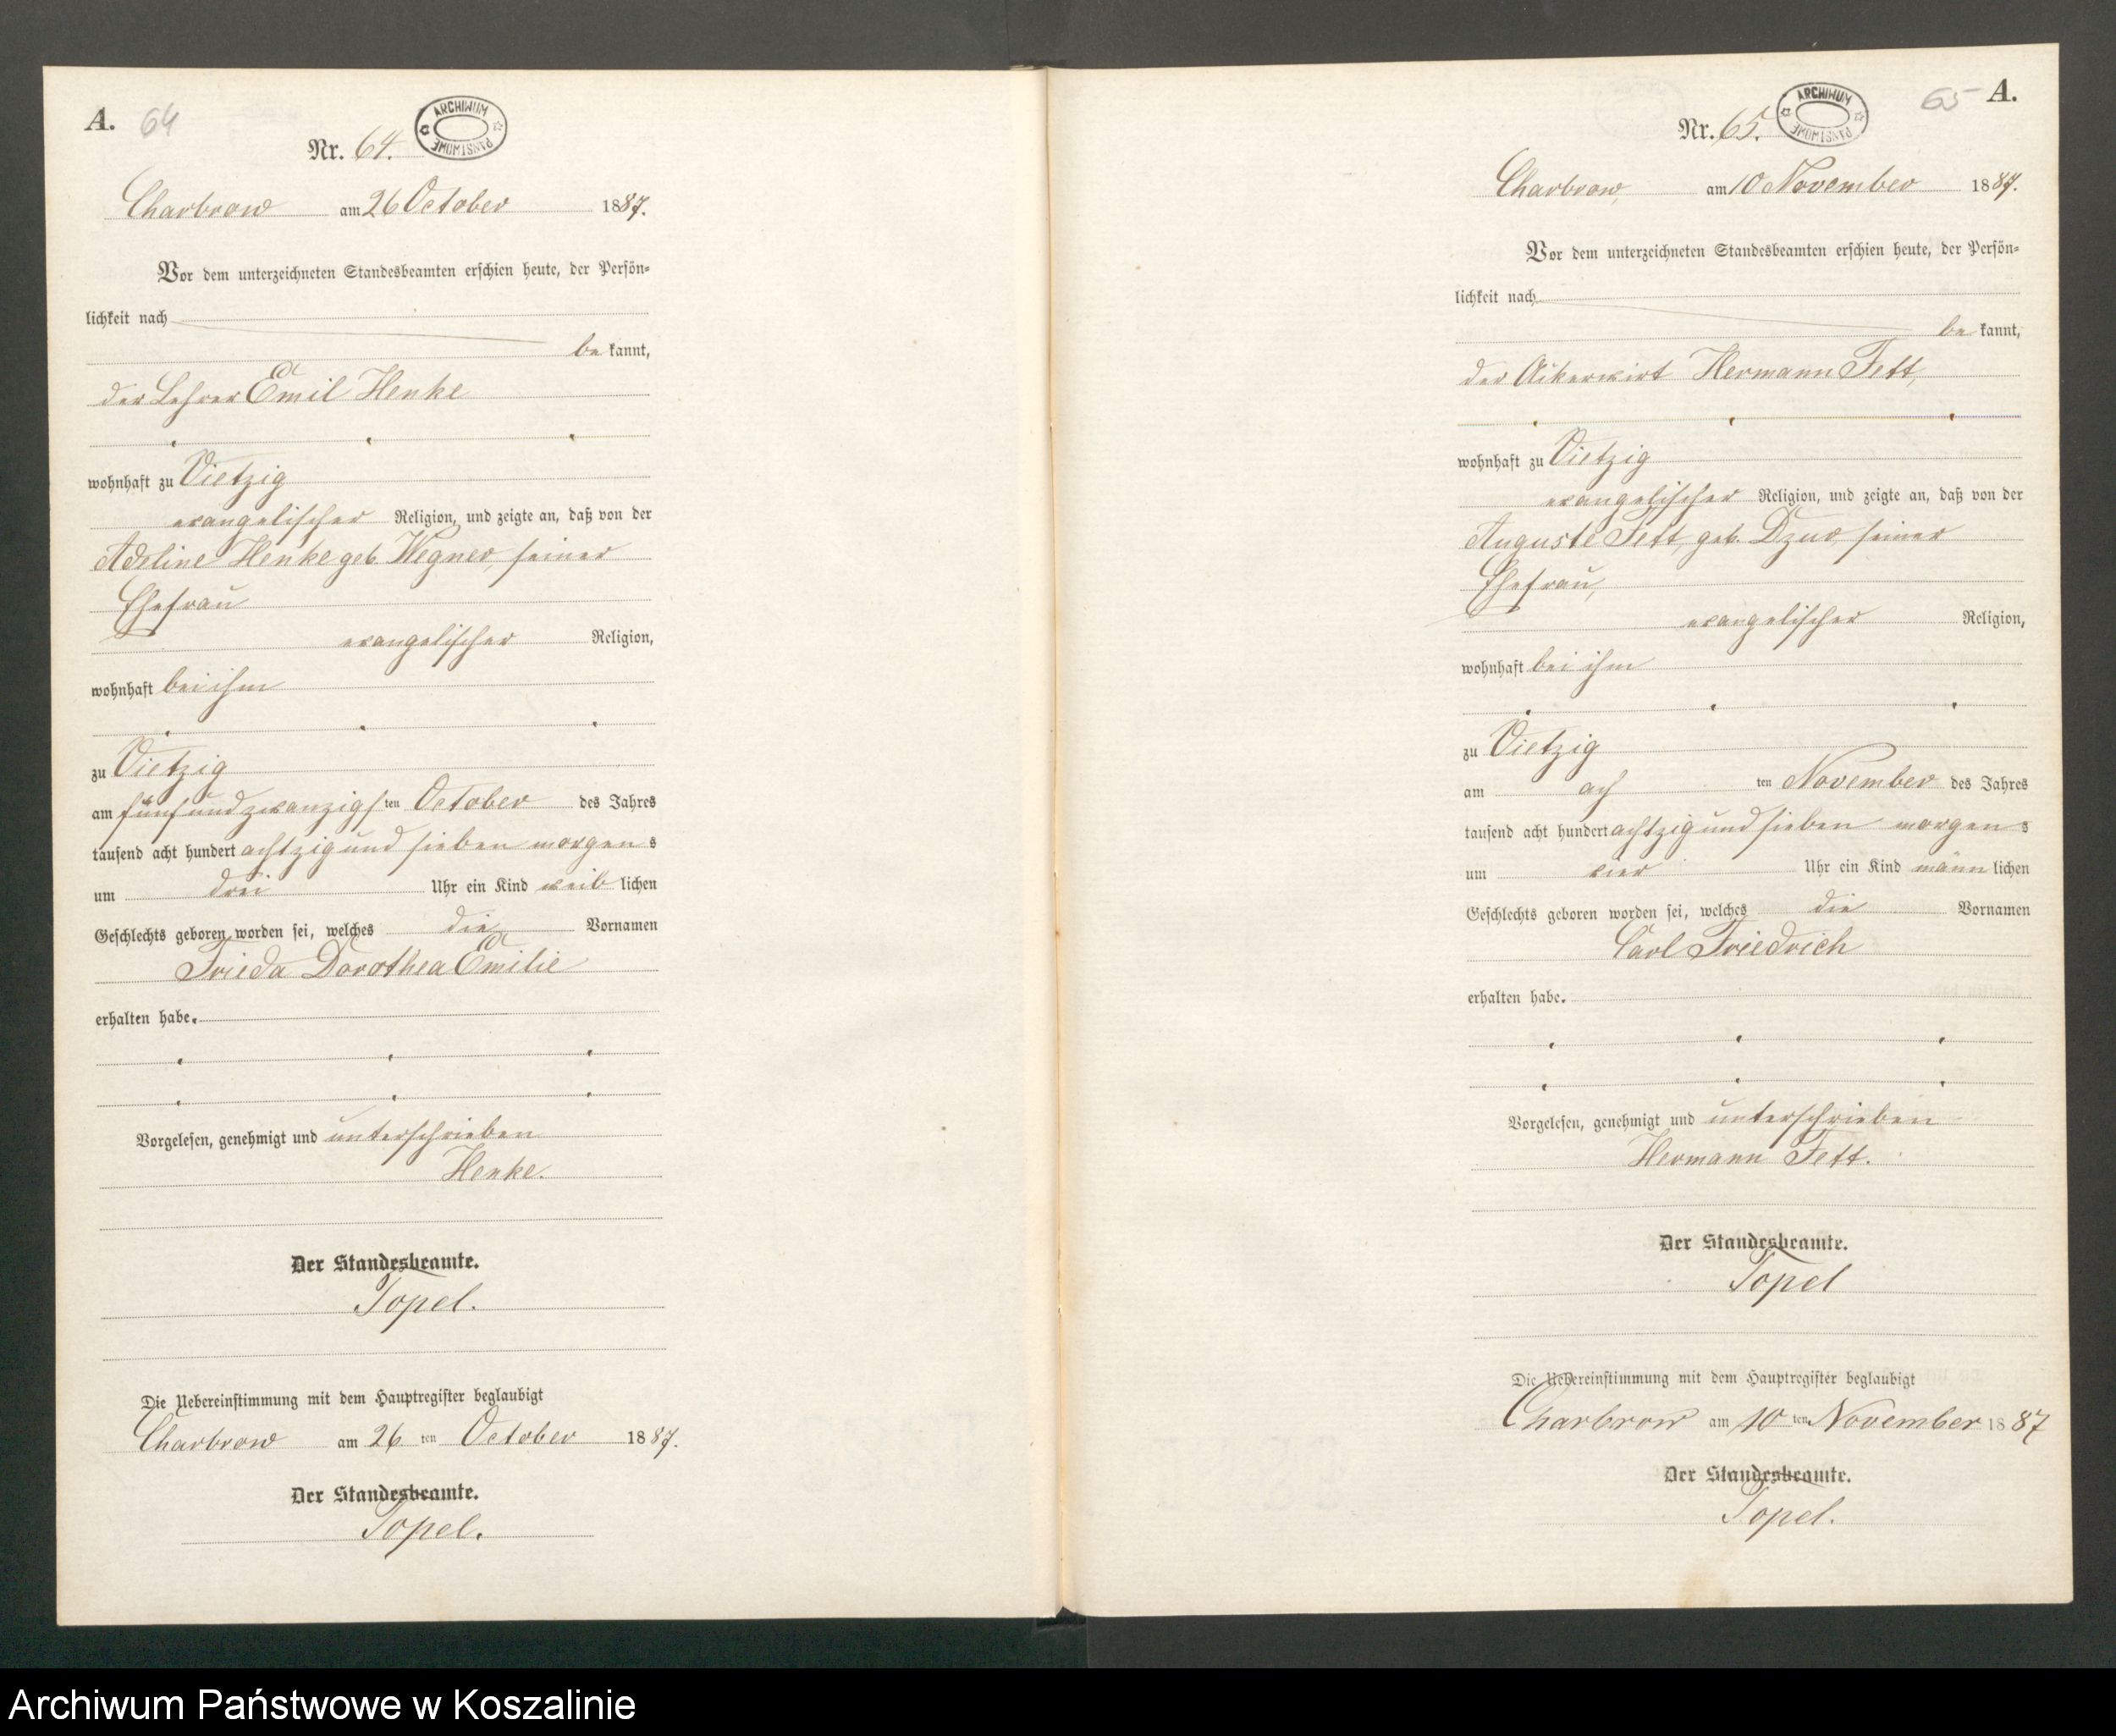 A. 64
ARCHIWUM PAŃSTWOWE
Nr. 64.
Charbrow am 26 October 1887.
Vor dem unterzeichneten Standesbeamten erschien heute, der Persön-
lichkeit nach
be kannt,
der Lehrer Emil Henke
wohnhaft zu Vietzig
evangelischer Religion, und zeigte an, daß von der
Adeline Henke geb. Wegner, seiner
Ehefrau
evangelischer Religion,
wohnhaft bei ihm
zu Vietzig
am fünfundzwanzigsten October des Jahres
tausend acht hundert achtzig und sieben morgens
um drei Uhr ein Kind weiblichen
Geschlechts geboren worden sei, welches die Vornamen
Frieda Dorothea Emilie
erhalten habe.
Vorgelesen, genehmigt und unterschrieben
Henke.
Der Standesbeamte.
Topel.
Die Uebereinstimmung mit dem Hauptregister beglaubigt
Charbrow am 26 ten October 1887.
Der Standesbeamte.
Topel.
65 A.
ARCHIWUM PAŃSTWOWE
Nr. 65.
Charbrow, am 10 November 1887.
Vor dem unterzeichneten Standesbeamten erschien heute, der Persön-
lichkeit nach
be kannt,
der Ackerwirt Hermann Fett,
wohnhaft zu Vietzig
evangelischer Religion, und zeigte an, daß von der
Auguste Fett, geb. seiner
Ehefrau,
evangelischer Religion,
wohnhaft bei ihm
zu Vietzig
am ach ten November des Jahres
tausend acht hundert achtzig und sieben morgens
um vier Uhr ein Kind männlichen
Geschlechts geboren worden sei, welches die Vornamen
Carl Friedrich
erhalten habe.
Vorgelesen, genehmigt und unterschrieben
Hermann Fett.
Der Standesbeamte.
Topel
Die Uebereinstimmung mit dem Hauptregister beglaubigt
Charbrow am 10 ten November 1887
Der Standesbeamte.
Topel.
Archiwum Państwowe w Koszalinie